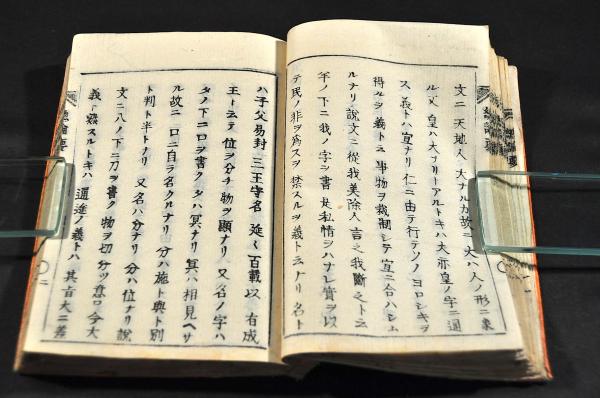 文ニ天地人大ナルカ故ニ大ハ人ノ形ニ象
ル又皇ハ大ナリーアルトキハ大亦皇ノ字ニ通
ス義トハ宜ナリ仁ニ由テ行テソノヨロシキヲ
得ルヲ義ト云事物ヲ裁制シテ宜ニ合ハシム
ルナリ説文ニ從我美除人言之我斷之ト云
羊ノ下ニ我ノ字シ書
私情ヲハナレ實ヲ以
テ民ノ非ヲ為スヲ禁スルヲ義ト云ナリ名ト
ハ子父易封三王守名
百載以有成
王ト云テ位ヲ分チ物ヲ顕ナリ又名ノ字ハ
タノ下ニ口ヲ書クタハ冥ナリ冥ハ相見ヘサ
ル故ニ口ニ自ラ名クルナリ分ハ施ト與ト別
ト判ト半トナリ又名ハ分ナリ分ハ位ナリ説
文ニ八ノ下ニ刀ヲ書ク物ヲ切分ツ意ロ今大
義ト
スルトキハ通途ノ義トハ其音大ニ差